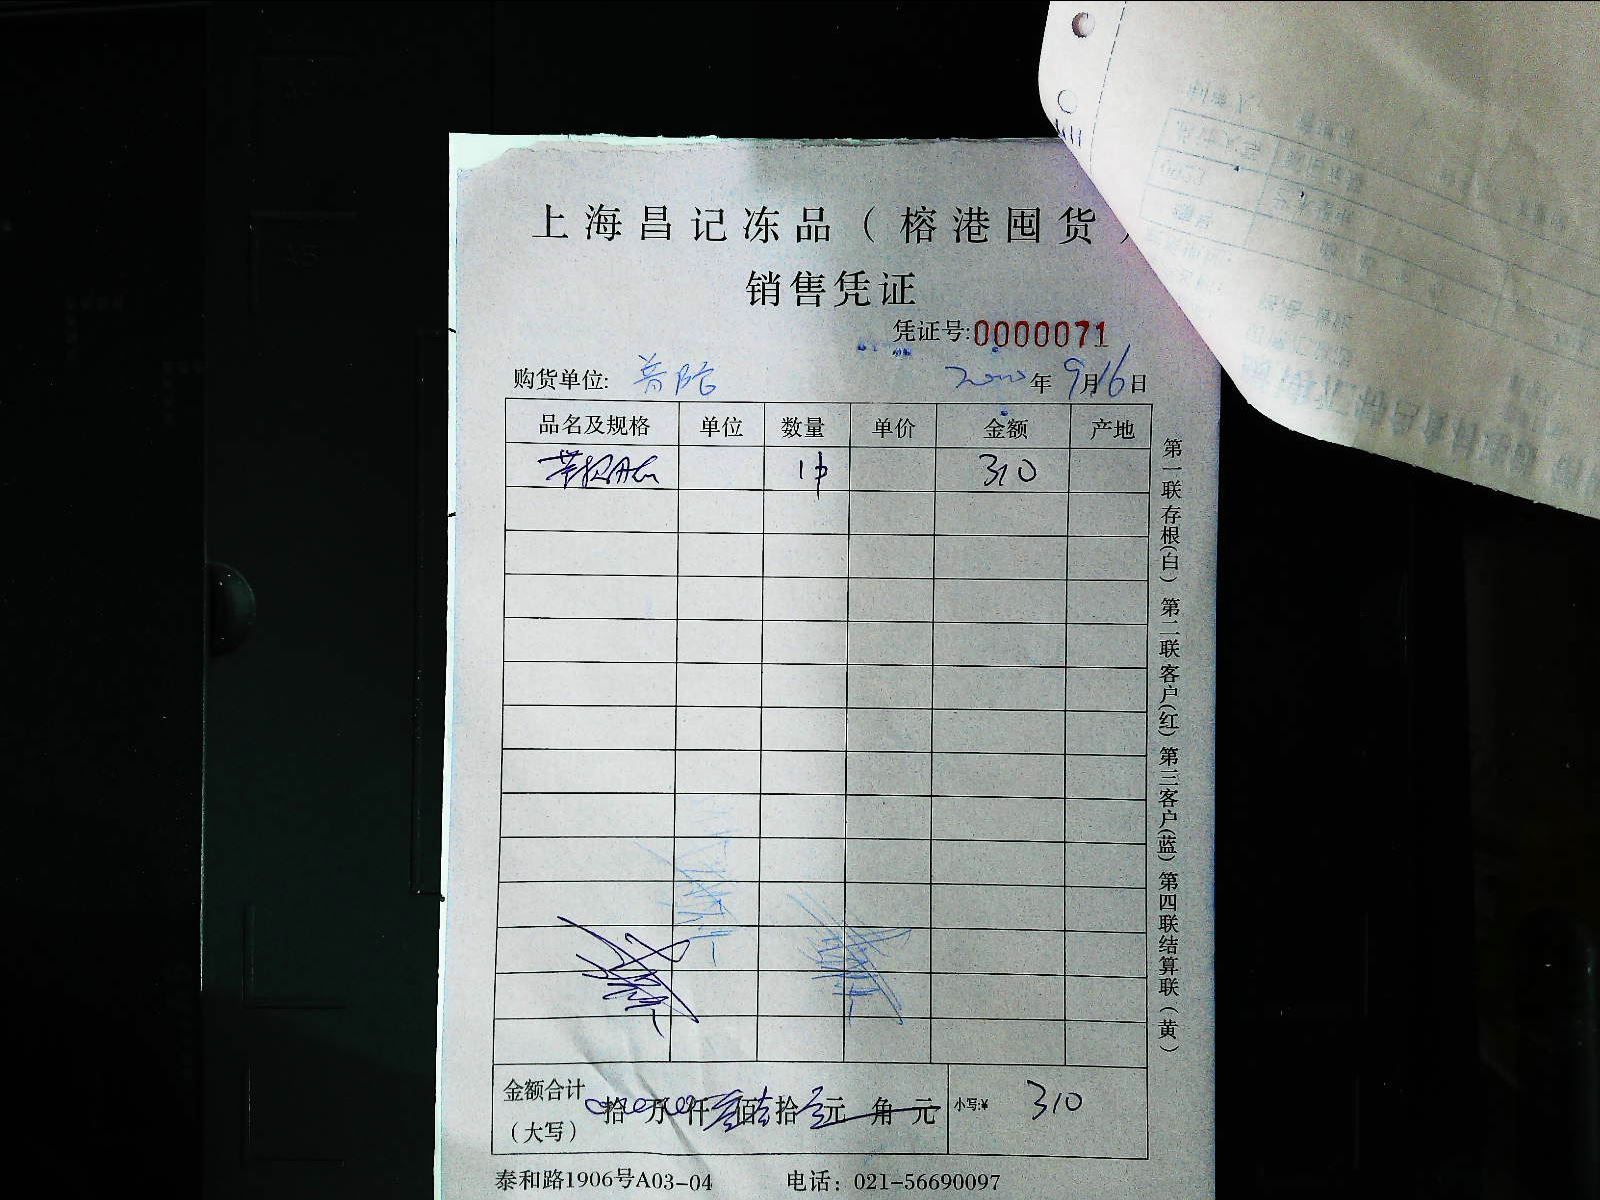 上海昌记冻品（榕港囤货）
销售凭证
凭证号:0000071
购货单位: 年 9月16日
品名及规格 单位 数量 单价 金额 产地
1件 310
金额合计（大写） 拾 万 仟 佰 拾 元 角 元 小写:¥ 310
泰和路1906号A03-04 电话：021-56690097
第一联存根(白) 第二联客户(红) 第三客户(蓝) 第四联结算联（黄）